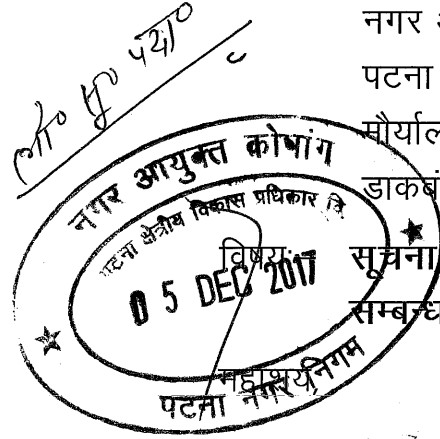 लो० सू० पदा०
नगर
पटना
मौर्याल
डाकबं
विषयः- सूचना
सम्बन्ध
महाशय,
नगर आयुक्त कोषांग
पटना क्षेत्रीय विकास प्रधिकार वि
05 DEC 2017
पटना नगर निगम